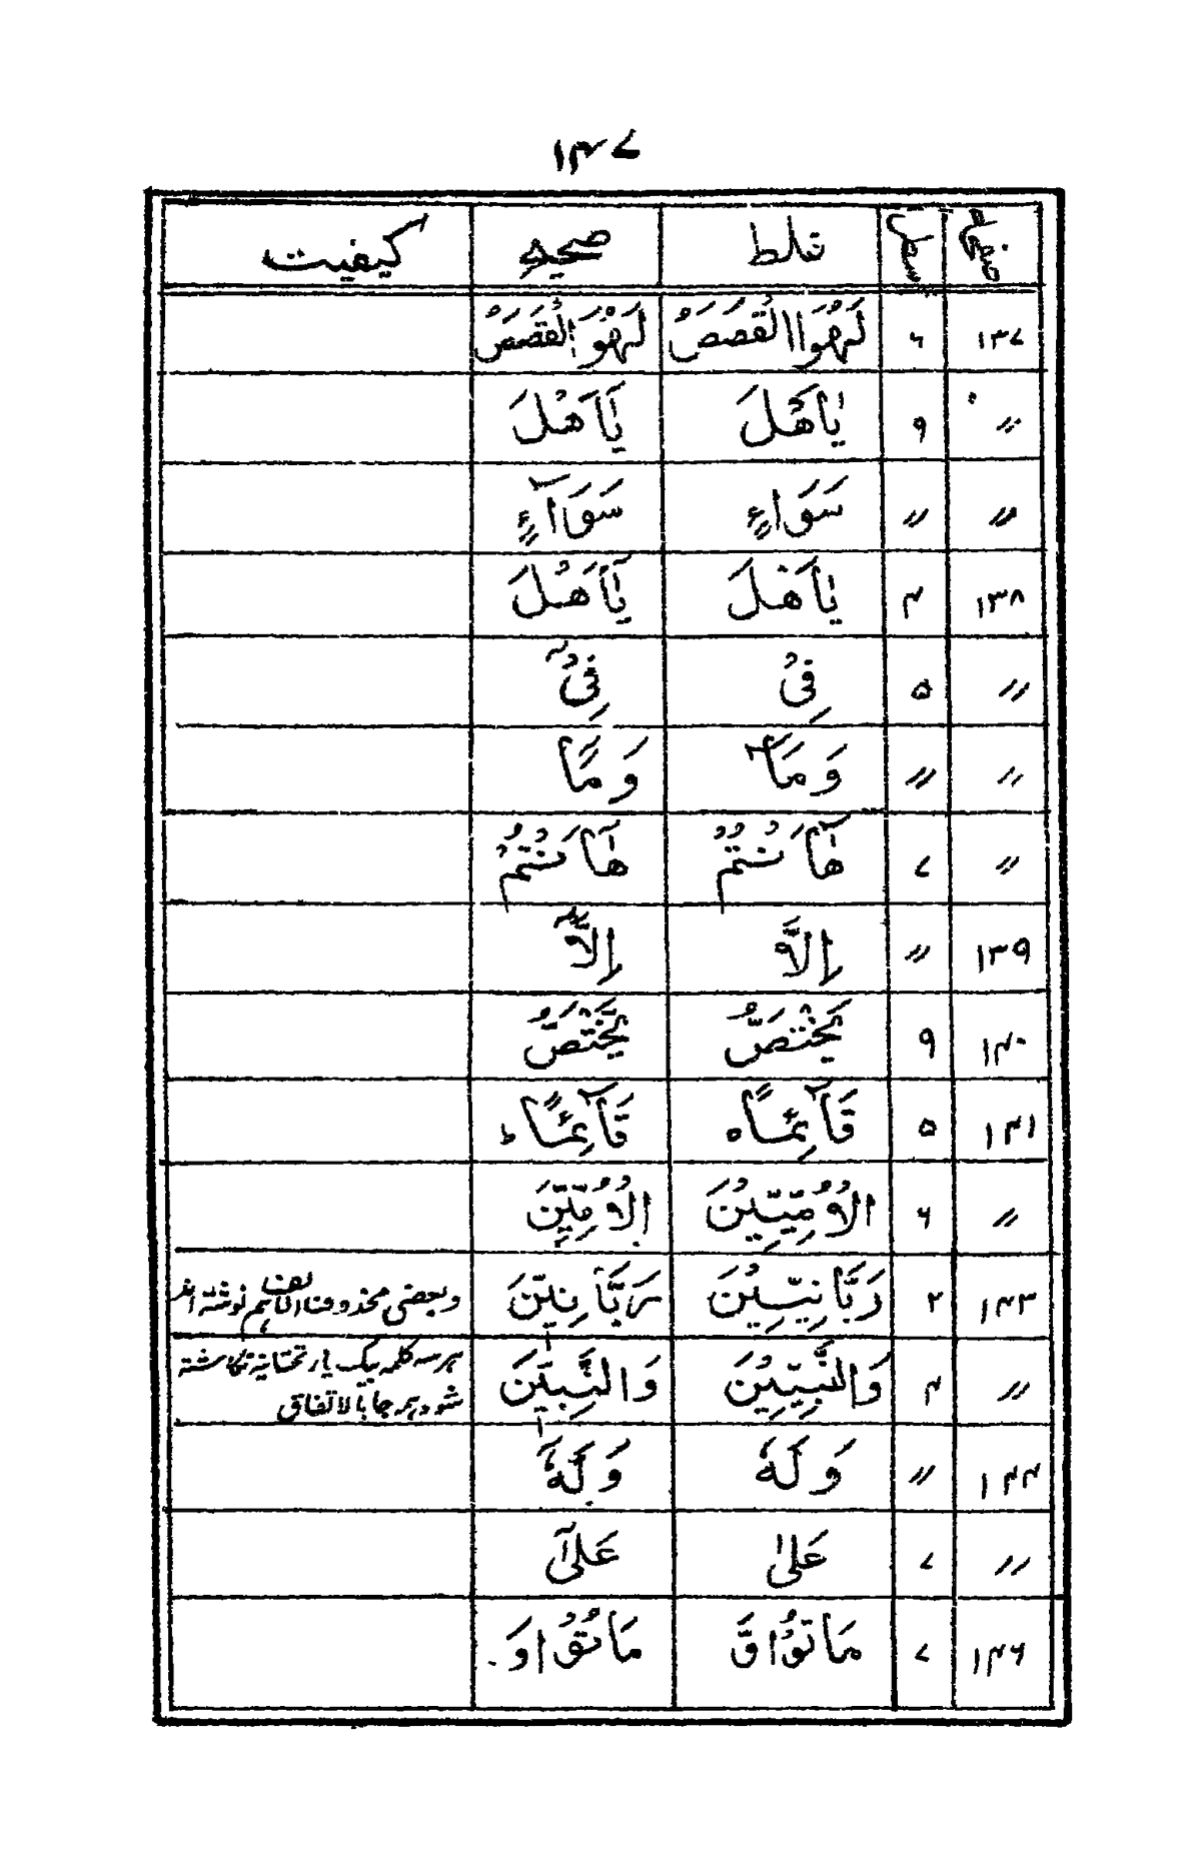 ۱۴۷
صفحہ سطر غلط صحیح کیفیت
۱۳۷ ۶ لَهُوَاالْقَصَصُ لَهُوَ الْقَصَصُ
〃 ۹ يٰاَهْلَ يٰٓاَهْلَ
〃 〃 سَوَاءٍ سَوَآءٍ
۱۳۸ ۴ يٰاَهْلَ يٰٓاَهْلَ
〃 ۵ فِىْ فِىْٓ
〃 〃 وَمَآ وَمَا
〃 ۷ هٰٓاَنْتُمْ هٰٓاَنْتُمْ
۱۳۹ 〃 اِلَّا اِلَّآ
۱۴۰ ۹ يَخْتَصُّ يَخْتَصُّ
۱۴۱ ۵ قَآئِمًا ہ قَآئِمًا ط
〃 ۶ الْاُمِّيِّيْنَ الْاُمِّيّٖنَ
۱۴۳ ۲ رَبَّانِيِّيْنَ رَبَّانِيّٖنَ وبعضی محذوف الالف ہم نوشتہ اند
〃 ۴ وَالنَّبِيِّيْنَ وَالنَّبِيّٖنَ ہرسہ کلمہ بیک یاء تحتانیہ نگاشتہ
شود ہر جا بالاتفاق
۱۴۴ 〃 وَلَهٗ وَلَهٗٓ
〃 ۷ عَلٰى عَلٰٓى
۱۴۶ ۷ مَاتُوْا وَّ مَاتُوْا وَ